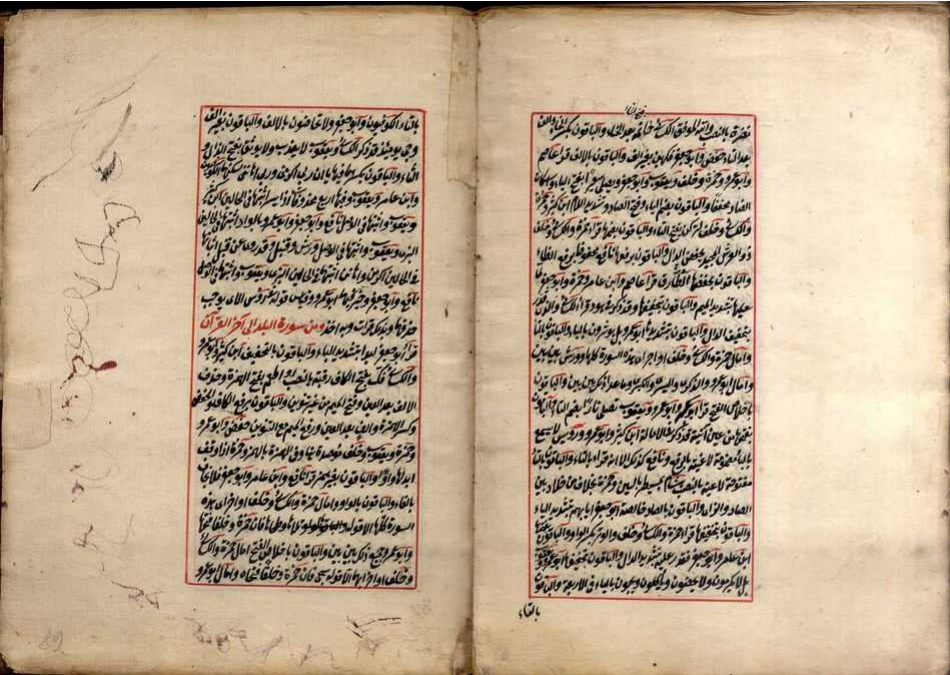 نضرة بالنصب الكسائي خاتمه بعد الخاء والباقون بكسر الخاء والف
بعد التاء حفص وابو جعفر فكهين بغير الف والباقون بالالف قرا عاصم
وابو عمرو وحمزة وخلف ويعقوب وابو جعفر ويصلى سعيرا بفتح الياء واسكان
الصاد مخففا والباقون بضم الياء وفتح الصاد وتشديد اللام ابن كثير وحمزة
والكسائي وخلف لتركبن بفتح الباء والباقون بضمها قرا حمزة والكسائي وخلف
ذو العرش المجيد بخفض الدال والباقون برفعها نافع محفوظ برفع الظاء
والباقون بخفضها الطارق قرا عاصم وابن عامر وحمزة وابو جعفر لما
عليها بتشديد الميم والباقون بتخفيفها وقد ذكر في هود قرا الكسائي والذي قدر
بتخفيف الدال والباقون بتشديدها ابو عمرو بل يؤثرون بالياء والباقون بالتاء
وامال حمزة والكسائي وخلف اواخر اي هذه السورة كلها وورش بين بين
وامال ابو عمرو الذكرى واليسرى والكبرى وما عدا ذلك بين بين والباقون
باخلاص الفتح قرا ابو بكر وابو عمرو ويعقوب تصلى نارا بضم التاء والباقون
بفتحها من عين آنية قد ذكر في الامالة ابن كثير وابو عمرو ورويس لا يسمع
بالياء مضمومة لاغية بالرفع ونافع كذلك الا انه قرا بالتاء والباقون بالتاء
مفتوحة لاغية بالنصب هشام بمسيطر بالسين وحمزة بخلاف عن خلاد بين
الصاد والزاي والباقون بالصاد خالصة ابو جعفر ايابهم بتشديد الياء
والباقون بتخفيفها قرا حمزة والكسائي وخلف والوتر بكسر الواو والباقون بفتحها
ابن عامر وابو جعفر فقدر عليه بتشديد الدال والباقون بتخفيفها ابو عمرو
بل لا يكرمون ولا يحضون وياكلون ويحبون بالياء في الاربعة والباقون
بالتاء
بالتاء الكوفيون وابو جعفر ولا تحاضون بالالف والباقون بغير الف
وجيء يومئذ قد ذكر الكسائي ويعقوب لا يعذب ولا يوثق بفتح الذال و
الثاء والباقون بكسرهما فيها ياآن ربي اكرمن وربي اهانن سكنها الكوفيون
وابن عامر ويعقوب وفيها اربع محذوفات اذا يسر اثبتها في الحالين ابن كثير
ويعقوب واثبتها في الوصل نافع وابو جعفر وابو عمرو بالواد اثبتها في الحالين
البزي ويعقوب واثبتها في الوصل ورش وقنبل وقد روي عن قنبل اثباتها
في الحالين اكرمن واهانن اثبتهما في الحالين البزي ويعقوب واثبتهما في الوصل
نافع وابو جعفر وخير فيهما ابو عمرو وقياس قوله في رؤس الاي يوجب
حذفهما وبذلك قرات وبه اخذ ومن سورة البلد الى آخر القرآن
قرا ابو جعفر لبدا بتشديد الباء والباقون بالتخفيف ابن كثير وابو عمرو
والكسائي فك بفتح الكاف رقبة بالنصب او اطعم بفتح الهمزة وحذف
الالف بعد العين وفتح الميم من غير تنوين والباقون برفع الكاف والخفض
وكسر الهمزة والف بعد العين ورفع الميم مع التنوين حفص وابو عمرو
وحمزة ويعقوب وخلف مؤصدة هنا وفي الهمزة بالهمز وحمزة اذا وقف
ابدلها واوا والباقون بغير همز قرا نافع وابن عامر وابو جعفر فلا يخاف
بالفاء والباقون بالواو وامال حمزة والكسائي وخلف اواخر اي هذه
السورة كلها الا قوله تلاها وطحاها فان حمزة وخلفا فتحاهما
وابو عمرو جميع ذلك بين بين والباقون باخلاص الفتح امال حمزة والكسائي
وخلف اواخر ايها الا قوله سجى فان حمزة وخلفا فتحاه وامال ابو عمرو